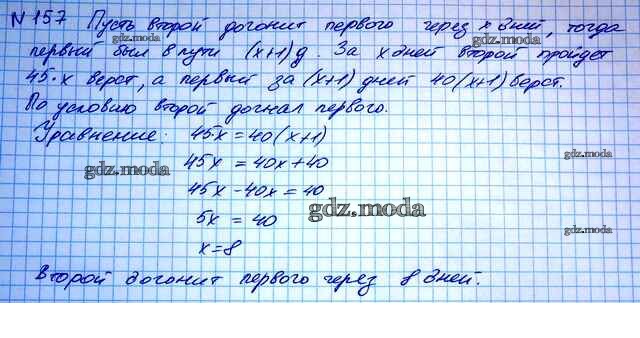 №157 Пусть второй догонит первого через x дней, тогда
первый был в пути (x+1) д. За x дней второй пройдет
45·x верст, а первый за (x+1) дней 40(x+1) верст.
По условию второй догнал первого.
Уравнение: 45·x = 40(x+1)
45x = 40x+40
45x-40x = 40
5x = 40
x=8
Второй догонит первого через 8 дней.
gdz.moda
gdz.moda
gdz.moda
gdz.moda
gdz.moda
gdz.moda